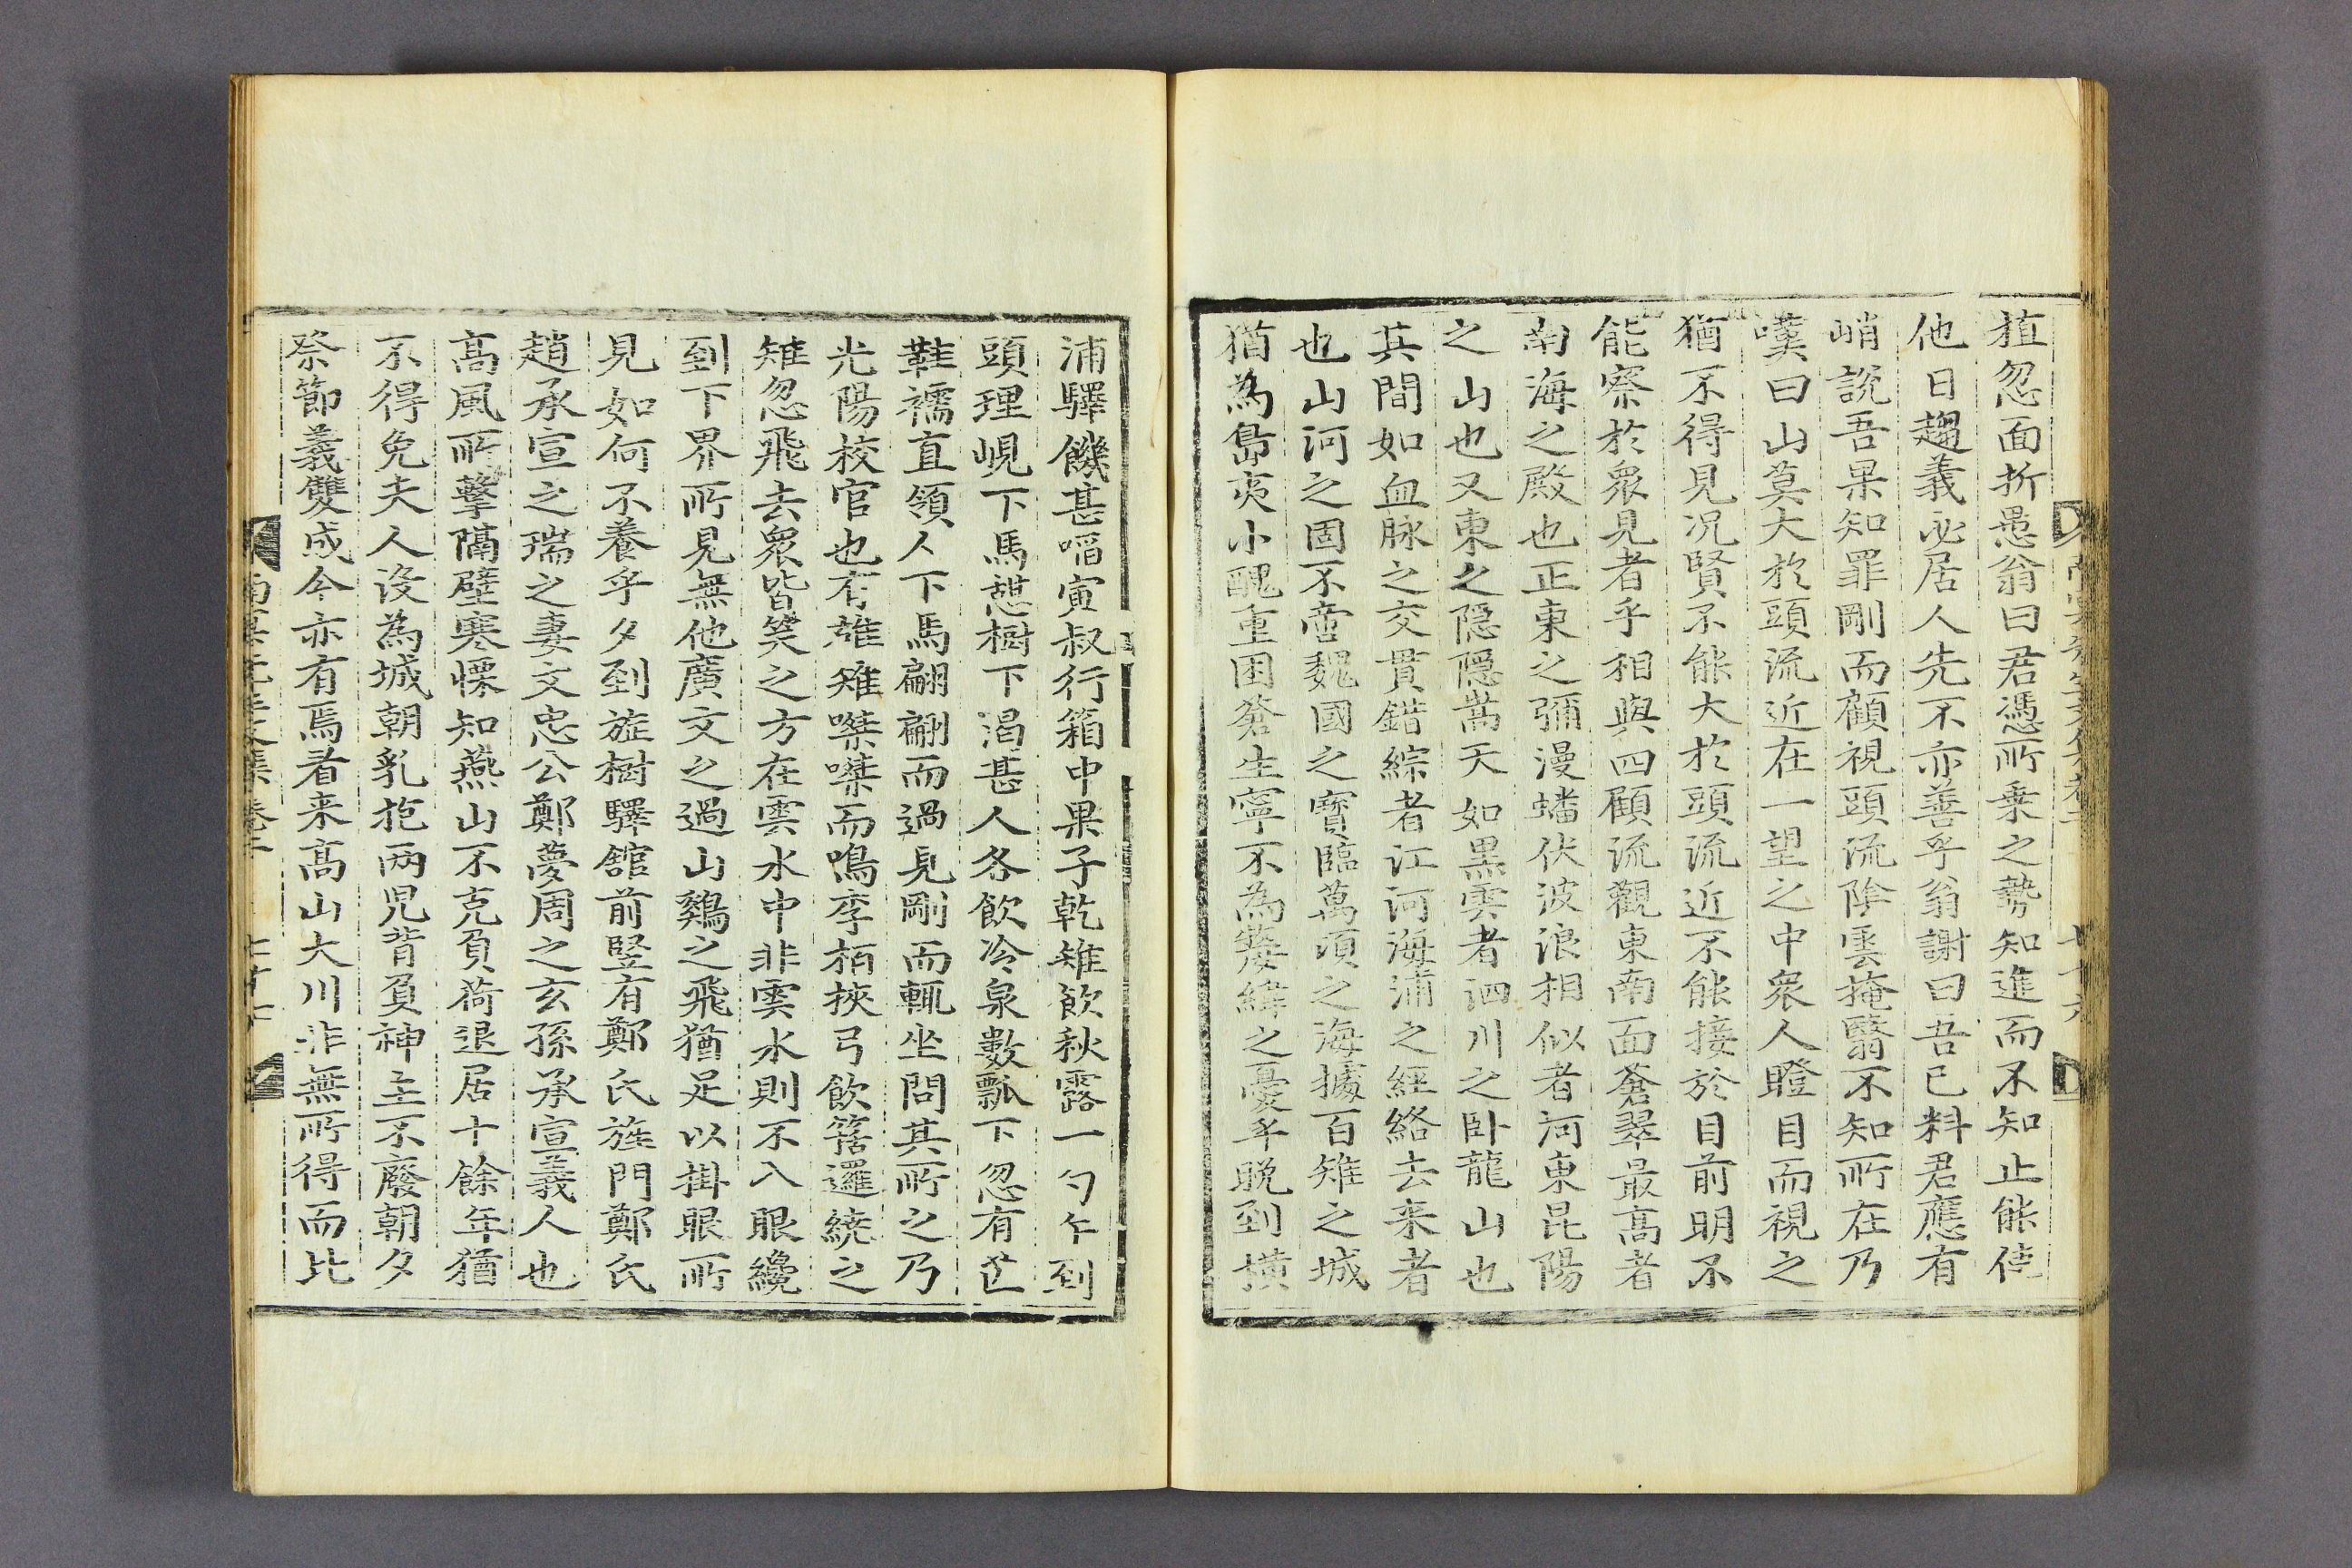 植忽面折愚翁曰君憑所乗之勢知進而不知止能使
他日趨義必居人先不亦善乎翁謝曰吾已料君應有
峭說吾果知罪剛而顧視頭流陰雲掩翳不知所在乃
嘆曰山莫大於頭流近在一望之中衆人瞪目而視之
猶不得見况賢不能大於頭流近不能接於目前明不
能察於衆見者乎相與四顧流觀東南面蒼翠最高者
南海之殿也正東之彌漫蟠伏波浪相似者河東昆陽
之山也又東之隠隠嵩天如黒雲者泗川之卧龍山也
其間如血脉之交貫錯綜者江河海浦之經絡去来者
也山河之固不啻魏國之寳臨萬頃之海據百雉之城
猶為島夷小醜重困蒼生寧不為嫠緯之憂乎晚到横
浦驛饑甚啗寅叔行箱中果子乾雉飮秋露一勺午到
頭理峴下馬憇樹下渴甚人各飮冷泉數瓢下忽有芒
鞋襦直領人下馬翩翩而過見剛而輒坐問其所之乃
光陽校官也有雄雉㗲㗲而鳴李栢挾弓飮筈邏繞之
雉忽飛去衆皆笑之方在雲水中非雲水則不入眼纔
到下界所見無他廣文之過山鷄之飛猶足以掛眼所
見如何不養乎夕到旌樹驛舘前竪有鄭氏旌門鄭氏
趙承宣之瑞之妻文忠公鄭夢周之玄孫承宣義人也
高風所擊隔壁寒慄知燕山不克負荷退居十餘年猶
不得免夫人沒為城朝乳抱兩児背負神主不廢朝夕
祭節義雙成今亦有焉看来高山大川非無所得而比